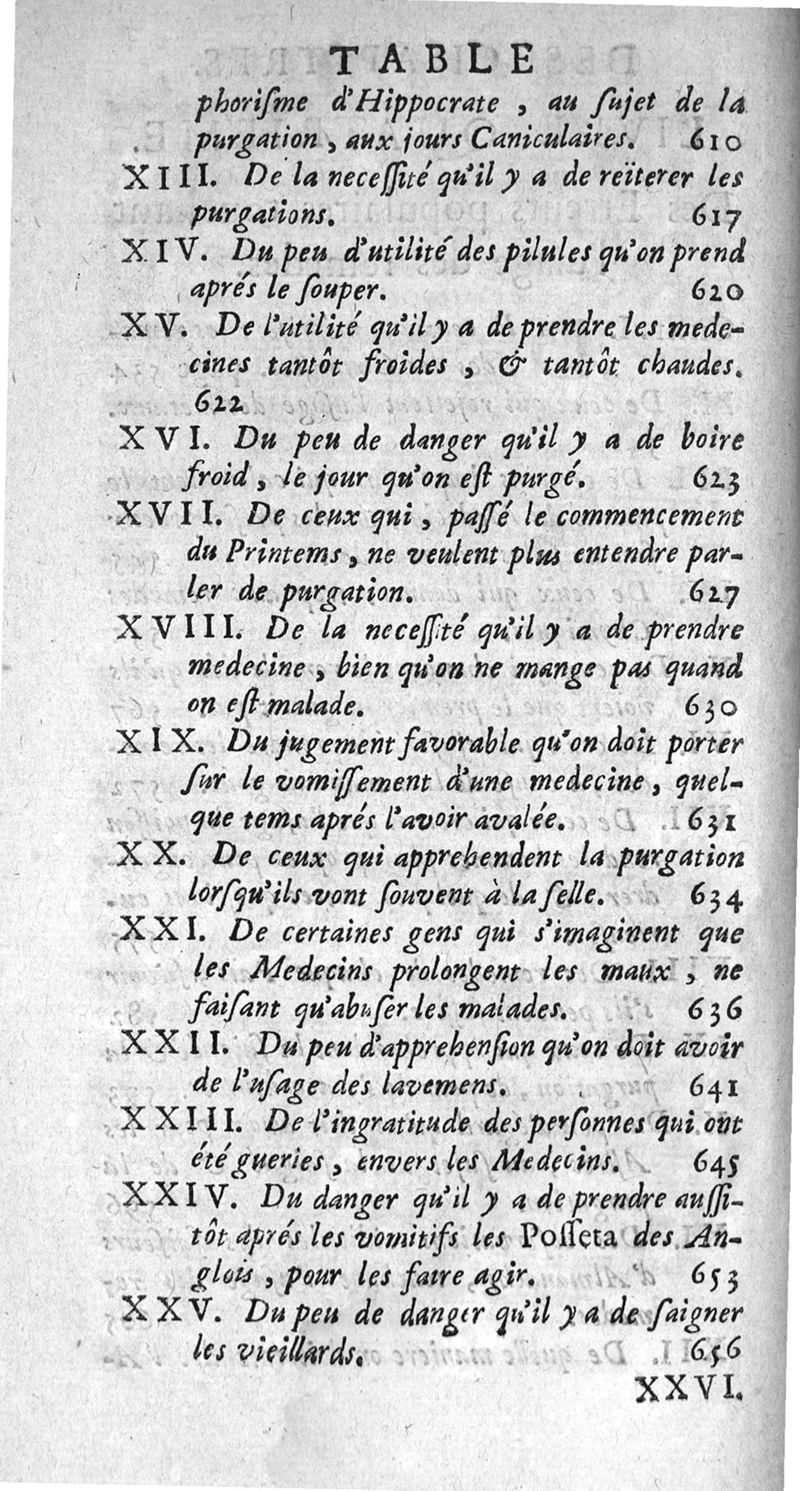 TABLE
phoriſme d'Hippocrate , au ſujet de la
purgation , aux jours Caniculaires. 610
XIII. De la neceſſité qu'il y a de reïterer les
purgations. 617
XIV. Du peu d'utilité des pilules qu'on prend
aprés le ſouper. 620
XV. De l'utilité qu'il y a de prendre les mede-
cines tantôt froides , & tantôt chaudes.
622
XVI. Du peu de danger qu'il y a de boire
froid , le jour qu'on eſt purgé. 623
XVII. De ceux qui , paſſé le commencement
du Printems , ne veulent plus entendre par-
ler de purgation. 627
XVIII. De la neceſſité qu'il y a de prendre
medecine , bien qu'on ne mange pas quand
on eſt malade. 630
XIX. Du jugement favorable qu'on doit porter
ſur le vomiſſement d'une medecine , quel-
que tems aprés l'avoir avalée. 631
XX. De ceux qui apprehendent la purgation
lorſqu'ils vont ſouvent à la ſelle. 634
XXI. De certaines gens qui s'imaginent que
les Medecins prolongent les maux , ne
faiſant qu'abuſer les malades. 636
XXII. Du peu d'apprehenſion qu'on doit avoir
de l'uſage des lavemens. 641
XXIII. De l'ingratitude des perſonnes qui ont
été gueries , envers les Medecins. 645
XXIV. Du danger qu'il y a de prendre auſſi-
tôt aprés les vomitifs les Poſſeta des An-
glois , pour les faire agir. 653
XXV. Du peu de danger qu'il y a de ſaigner
les vieillards. 656
XXVI.